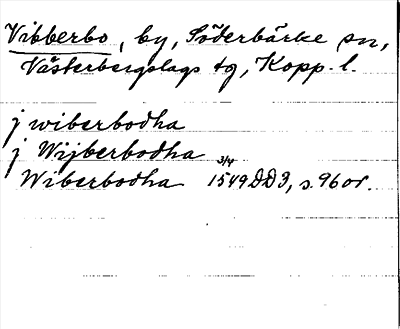 Vibberbo, by, Söderbärke sn,
Västerbergslags tg, Kopp. l.
j wiberbodha
j Wijberbodha
Wiberbodha 3/4 1549 DD3, s. 96 or.